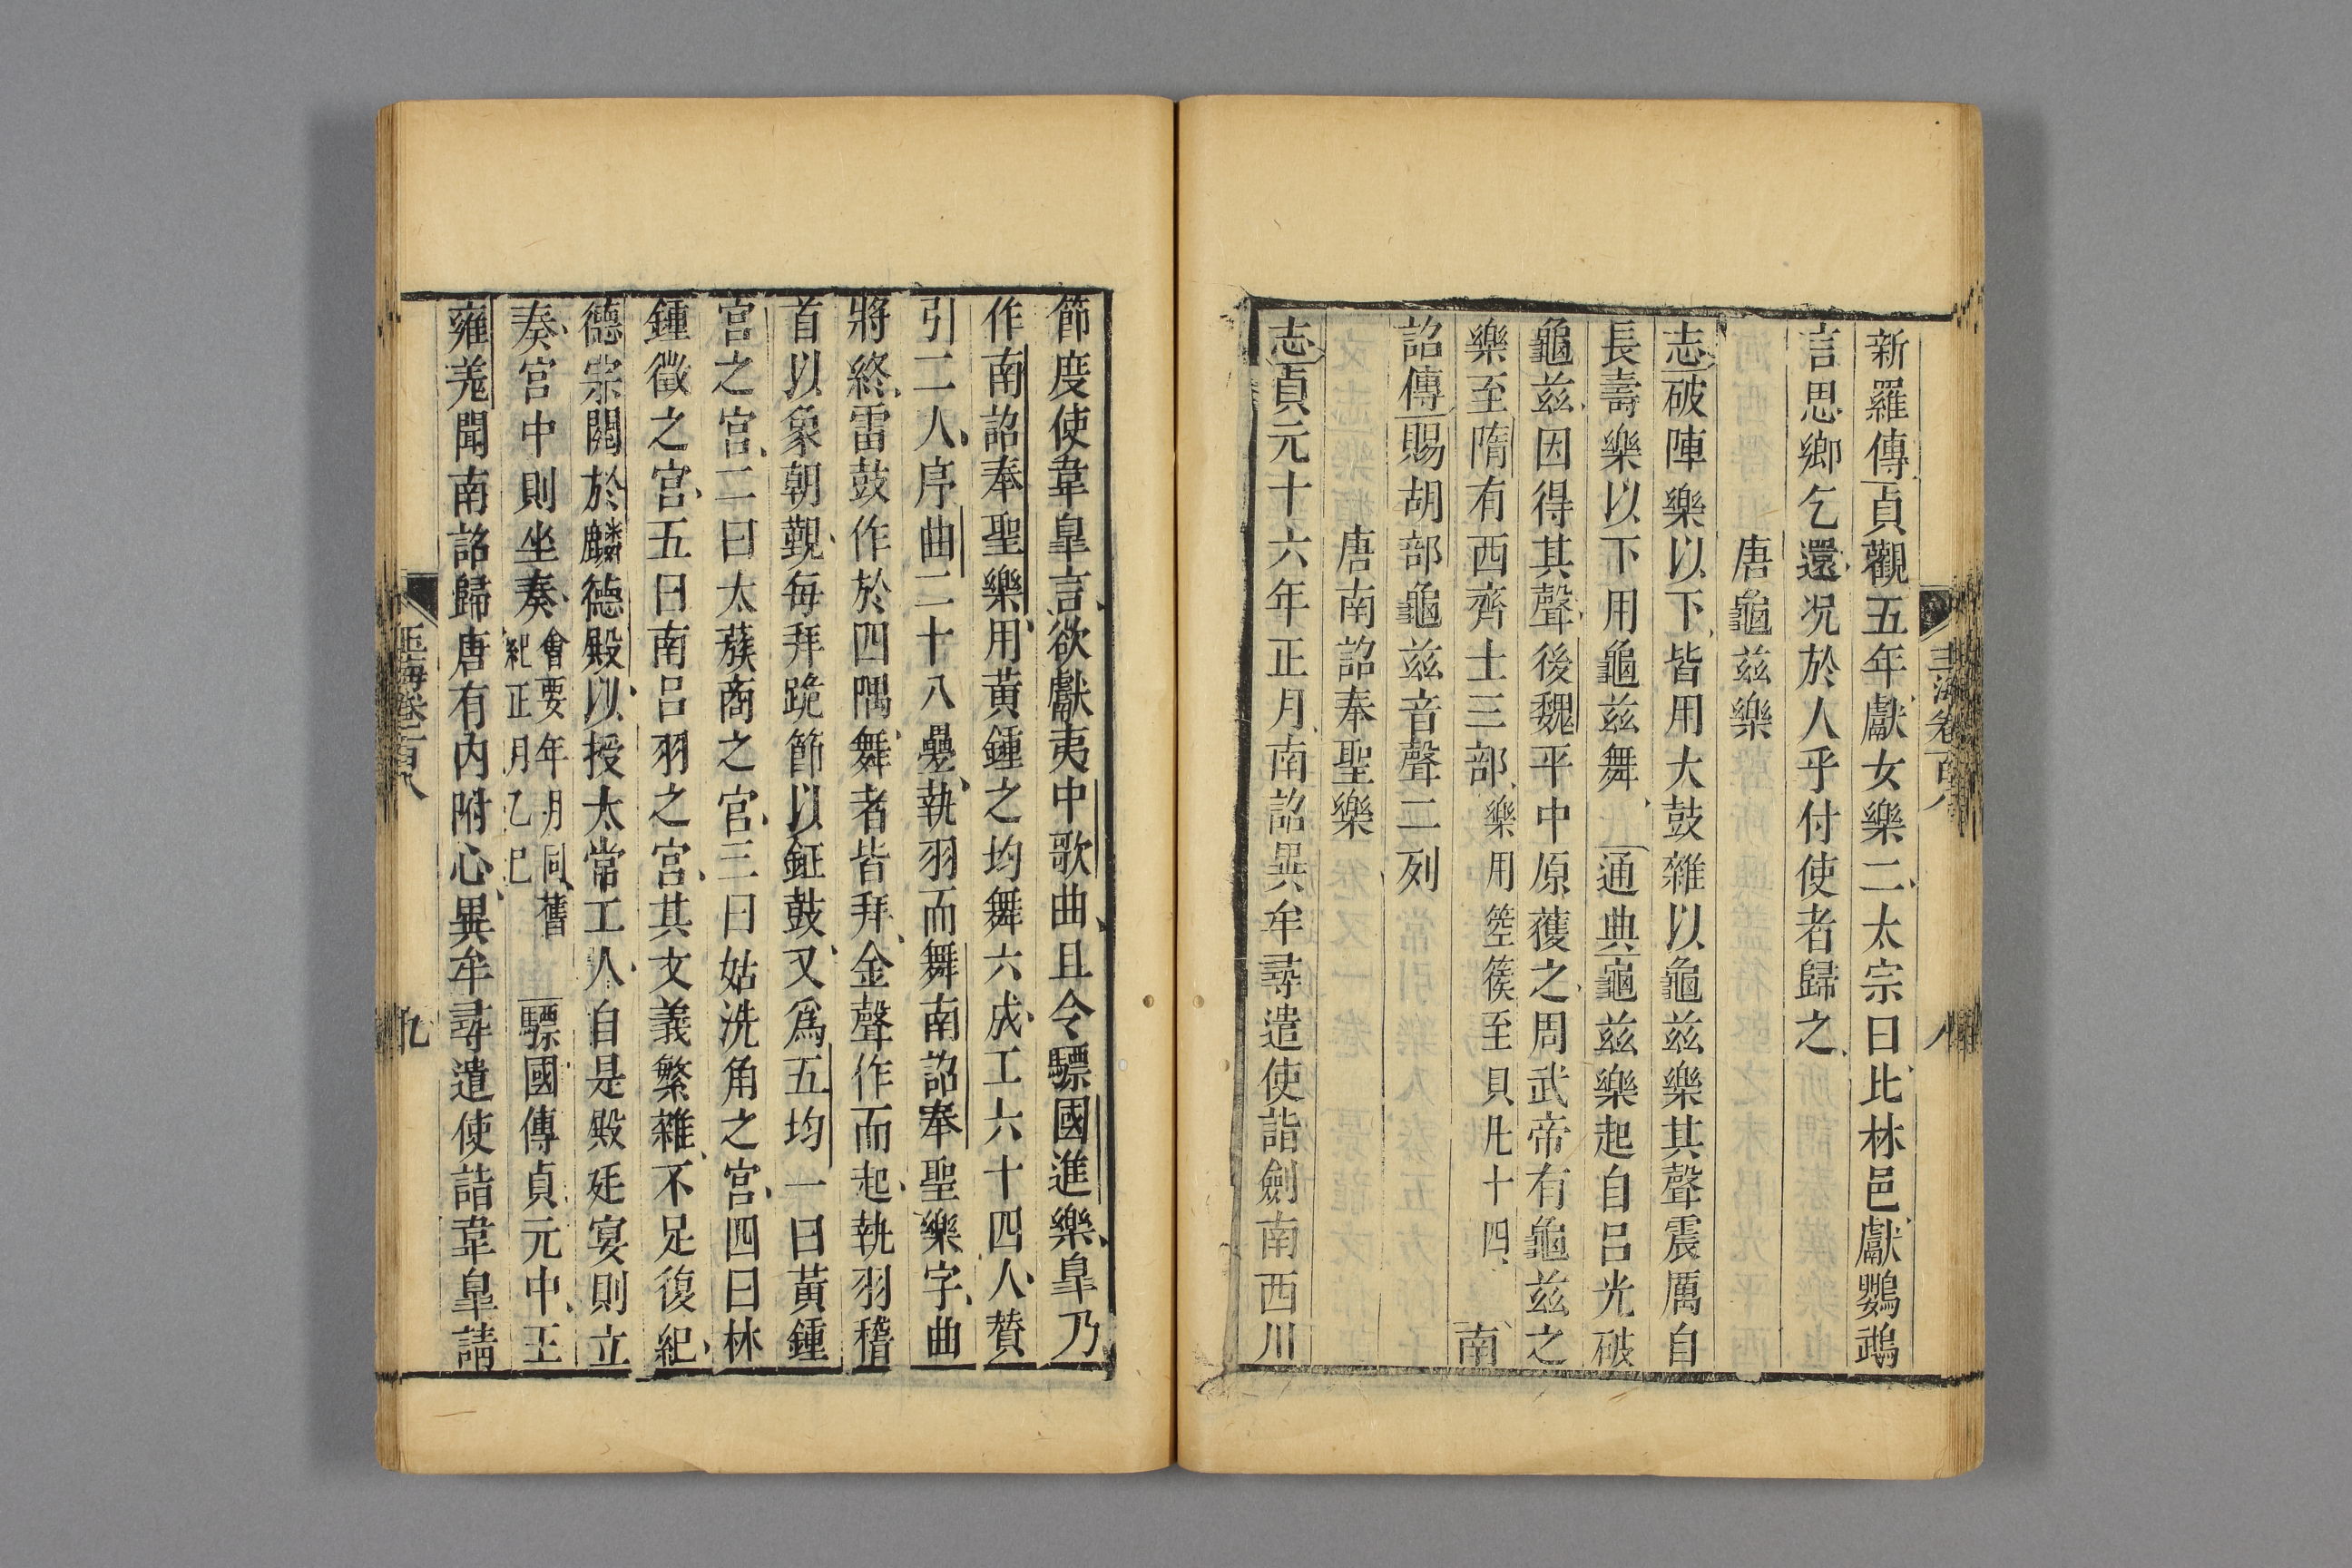 玉海卷百八
八
新羅傳貞觀五年獻女樂二太宗曰比林邑獻鸚鵡
言思鄉乞還况於人乎付使者歸之
唐龜兹樂
志破陣樂以下皆用大鼓雜以龜兹樂其聲震厲自
長壽樂以下用龜兹舞通典龜兹樂起自吕光破
龜兹因得其聲後魏平中原獲之周武帝有龜兹之
樂至隋有西齊土三部樂用箜篌至貝凡十四南
詔傳賜胡部龜兹音聲二列
唐南詔奉聖樂
志貞元十六年正月南詔異牟尋遣使詣劍南西川
節度使韋皐言欲獻夷中歌曲且令驃國進樂皐乃
作南詔奉聖樂用黃鍾之均舞六成工六十四人贊
引二人序曲二十八疊執羽而舞南詔奉聖樂字曲
將終雷鼓作於四隅舞者皆拜金聲作而起執羽稽
首以象朝覲每拜跪節以鉦鼓又爲五均一曰黃鍾
宮之宮二曰太蔟商之宮三曰姑洗角之宮四曰林
鍾徵之宮五曰南呂羽之宮其文義繁雜不足復紀
德宗閱於麟德殿以授太常工人自是殿廷宴則立
奏宮中則坐奏會要年月同舊紀正月乙巳驃國傳貞元中王
雍羌聞南詔歸唐有内附心異牟尋遣使詣韋皐請
玉海卷一百八
九